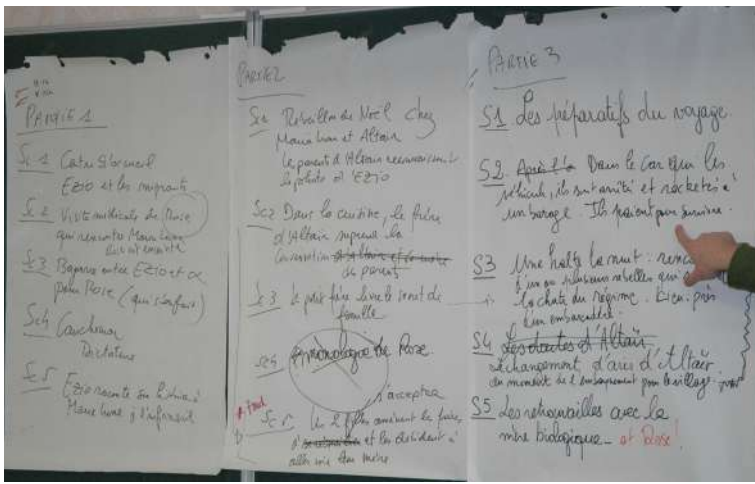 PARTIE 1
Sc 1
Ezio et les migrants
Sc 2 Visite médicale de Rose
qui rencontre
Sc 3 Bagarre entre Ezio et
pour Rose (qui s'enfuit)
Sc 4 Cauchemar
Dictateur
Sc 5 Ezio raconte son histoire à
à l'infirmerie
PARTIE 2
Sc 1 Réveillon de Noël chez
et Altaïr
Les parents d'Altaïr reconnaissent
la photo d'Ezio
Sc 2 Dans la cuisine, le frère
d'Altaïr surprend la
conversation
des parents
Sc 3 le père frère livre le secret de
famille
Sc 4 Monologue de Rose
d'accepter
Sc 5 Les 2 filles amènent les frères
à et les décident à
aller voir leur mère
PARTIE 3
S1 Les préparatifs du voyage
S2 Dans le car qui les
véhicule, ils sont arrêtés et rackettés à
un barrage. Ils paient pour survivre.
S3 Une halte la nuit :
d'un ou plusieurs rebelles qui
la chute du régime. Bien près
d'un embarcadère.
S4 Les doutes d'Altaïr
changement d'avis d'Altaïr
au moment de l'embarquement pour le village
S5 Les retrouvailles avec la
mère biologique - et Rose!